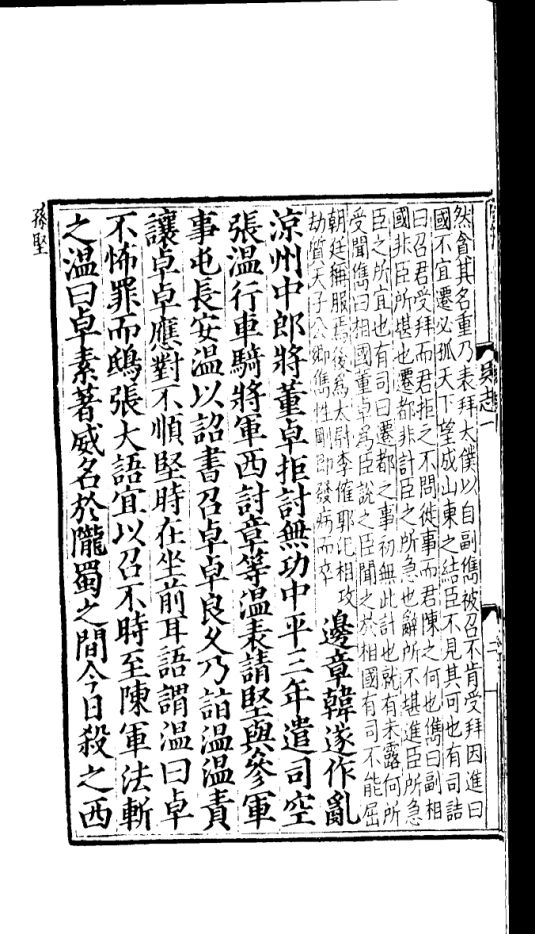 吳志一
三
然貪其名重乃表拜太僕以自副儁被召不肯受拜因進曰
國不宜遷必孤天下望成山東之結臣不見其可也有司詰
曰召君受拜而君拒之不問徙事而君陳之何也儁曰副相
國非臣所堪也遷都非計臣之所急也辭所不堪進臣所急
臣之所宜也有司曰遷都之事初無此計也就有未露何所
受聞儁曰相國董卓為臣說之臣聞之於相國有司不能屈
朝廷稱服焉後為太尉李傕郭汜相攻
劫質天子公卿儁性剛即發病而卒
邊章韓遂作亂
涼州中郎將董卓拒討無功中平三年遣司空
張溫行車騎將軍西討章等溫表請堅與參軍
事屯長安溫以詔書召卓卓良久乃詣溫溫責
讓卓卓應對不順堅時在坐前耳語謂溫曰卓
不怖罪而鴟張大語宜以召不時至陳軍法斬
之溫曰卓素著威名於隴蜀之間今日殺之西
孫堅